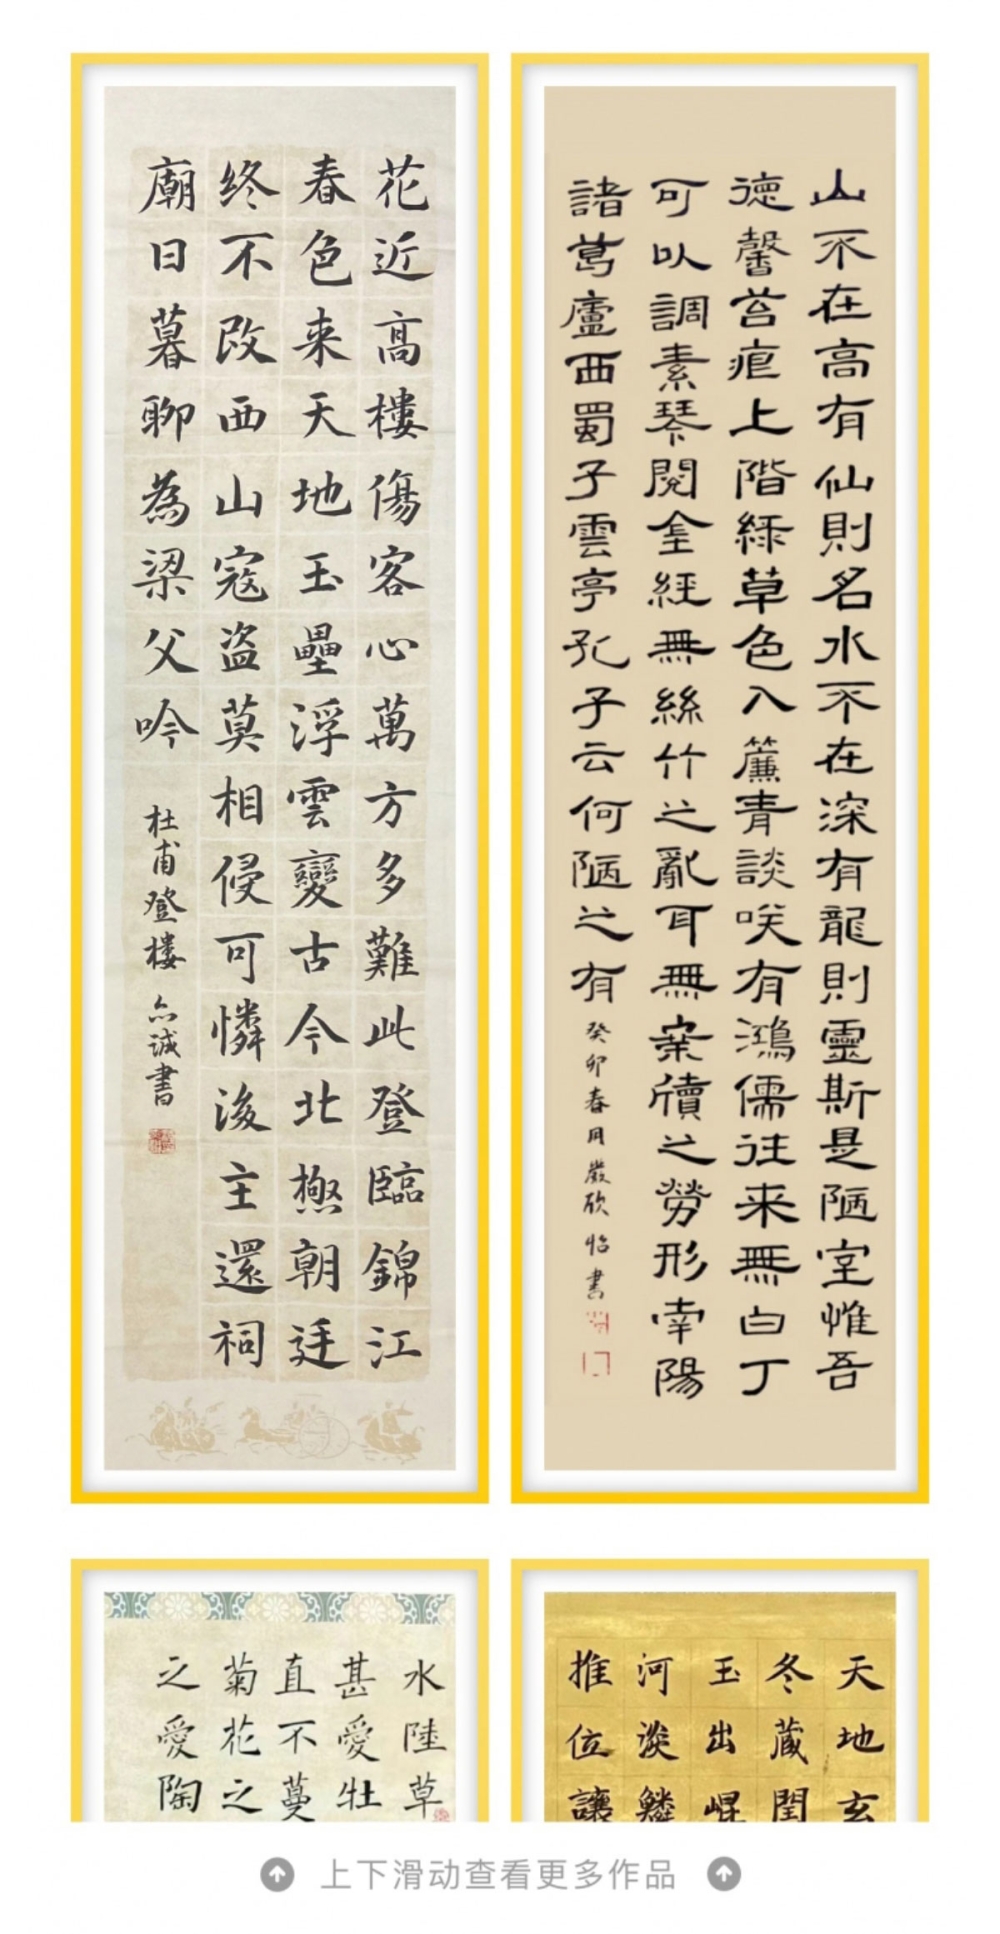 花近高樓傷客心萬方多難此登臨錦江
春色来天地玉壘浮雲變古今北極朝廷
终不改西山寇盗莫相侵可憐後主還祠
廟日暮聊為梁父吟
杜甫登楼 亦誠書
山不在高有仙則名水不在深有龍則靈斯是陋室惟吾
德馨苔痕上階緑草色入簾青談咲有鴻儒往来無白丁
可以調素琴閱金經無絲竹之亂耳無案牘之勞形南陽
諸葛廬西蜀子雲亭孔子云何陋之有
癸卯春月嚴欣怡書
水陸草
甚愛牡
直不蔓
菊花之
之愛陶
天地玄
冬藏閏
玉出崐
河淡鱗
推位讓
上下滑动查看更多作品